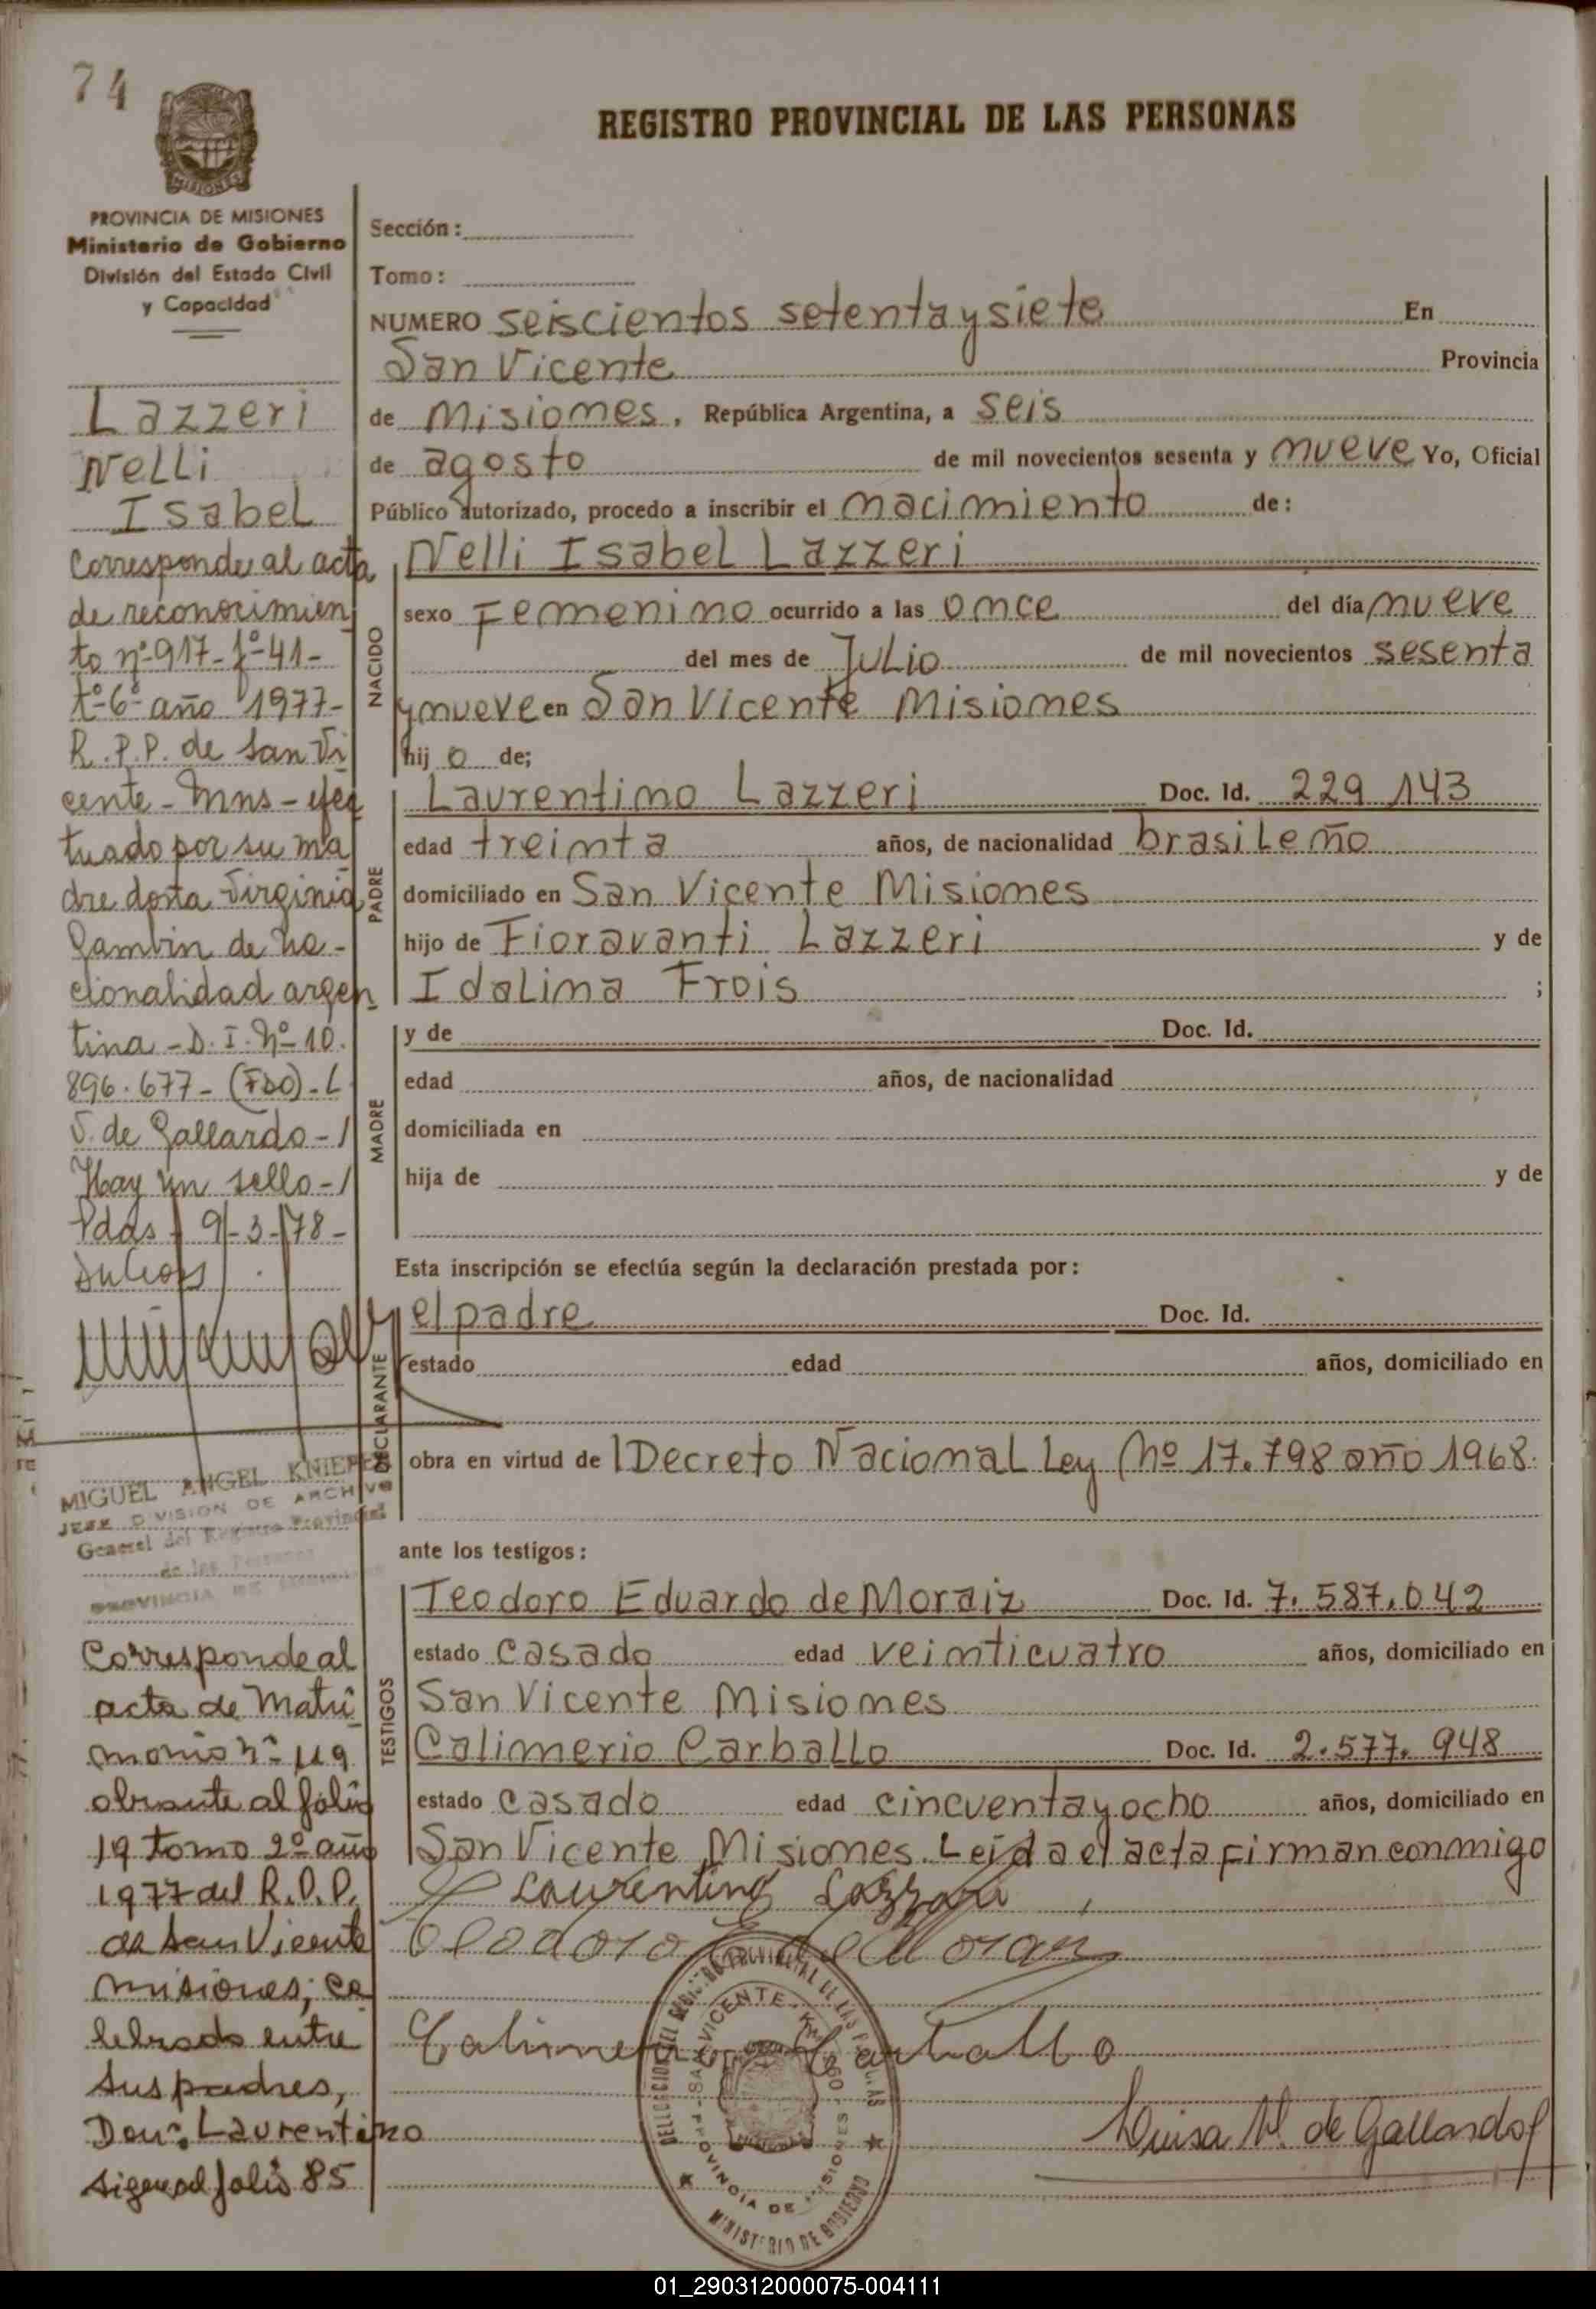 74
REGISTRO PROVINCIAL DE LAS PERSONAS
MISIONES
PROVINCIA DE MISIONES
Ministerio de Gobierno
División del Estado Civil
y Capacidad
Lazzeri
Nelli
Isabel
Corresponde al acta
de reconocimien
to nº 917-fº-41-
tº-6º año 1977-
R.P.P. de San Vi
cente - Mns - efec
tuado por su ma
dre doña Virginia
Gambin de na-
cionalidad argen
tina - D.I. Nº 10.
896.677- (FDO)-L
V. de Gallardo -/
Hay un sello -/
Pdas 9-3-78-
MIGUEL ANGEL KNIEPE
JEFE DIVISION DE ARCHIVO
General del Registro Provincial
de las Personas
PROVINCIA DE MISIONES
Corresponde al
acta de Matri
monio nº 119
obrante al folio
19 tomo 2º año
1977 del R.P.P.
de San Vicente
misiones; ce
lebrado entre
sus padres,
Don: Laurentino
sigue al folio 85
Sección:
Tomo:
NUMERO seiscientos setenta y siete En
San Vicente Provincia
de Misiones, República Argentina, a seis
de agosto de mil novecientos sesenta y nueve Yo, Oficial
Público autorizado, procedo a inscribir el nacimiento de:
Nelli Isabel Lazzeri
NACIDO
sexo Femenino ocurrido a las once del día nueve
del mes de Julio de mil novecientos sesenta
y nueve en San Vicente Misiones
hij o de;
PADRE
Laurentino Lazzeri Doc. Id. 229 143
edad treinta años, de nacionalidad brasileño
domiciliado en San Vicente Misiones
hijo de Fioravanti Lazzeri y de
Idalina Frois ;
MADRE
y de Doc. Id.
edad años, de nacionalidad
domiciliada en
hija de y de
Esta inscripción se efectúa según la declaración prestada por:
DECLARANTE
el padre Doc. Id.
estado edad años, domiciliado en
obra en virtud de lDecreto Nacional Ley Nº 17.798 año 1968.
ante los testigos:
TESTIGOS
Teodoro Eduardo de Moraiz Doc. Id. 7.587.042
estado casado edad veinticuatro años, domiciliado en
San Vicente Misiones
Calimerio Carballo Doc. Id. 2.577.948
estado casado edad cincuenta y ocho años, domiciliado en
San Vicente Misiones. Leída el acta firman conmigo
Laurentino Lazzari
Calimerio Carballo
Luisa V. de Gallardo
DELEGACION DEL REGISTRO PROVINCIAL DE LAS PERSONAS
SAN VICENTE
PROVINCIA DE MISIONES
MINISTERIO DE GOBIERNO
01_290312000075-004111